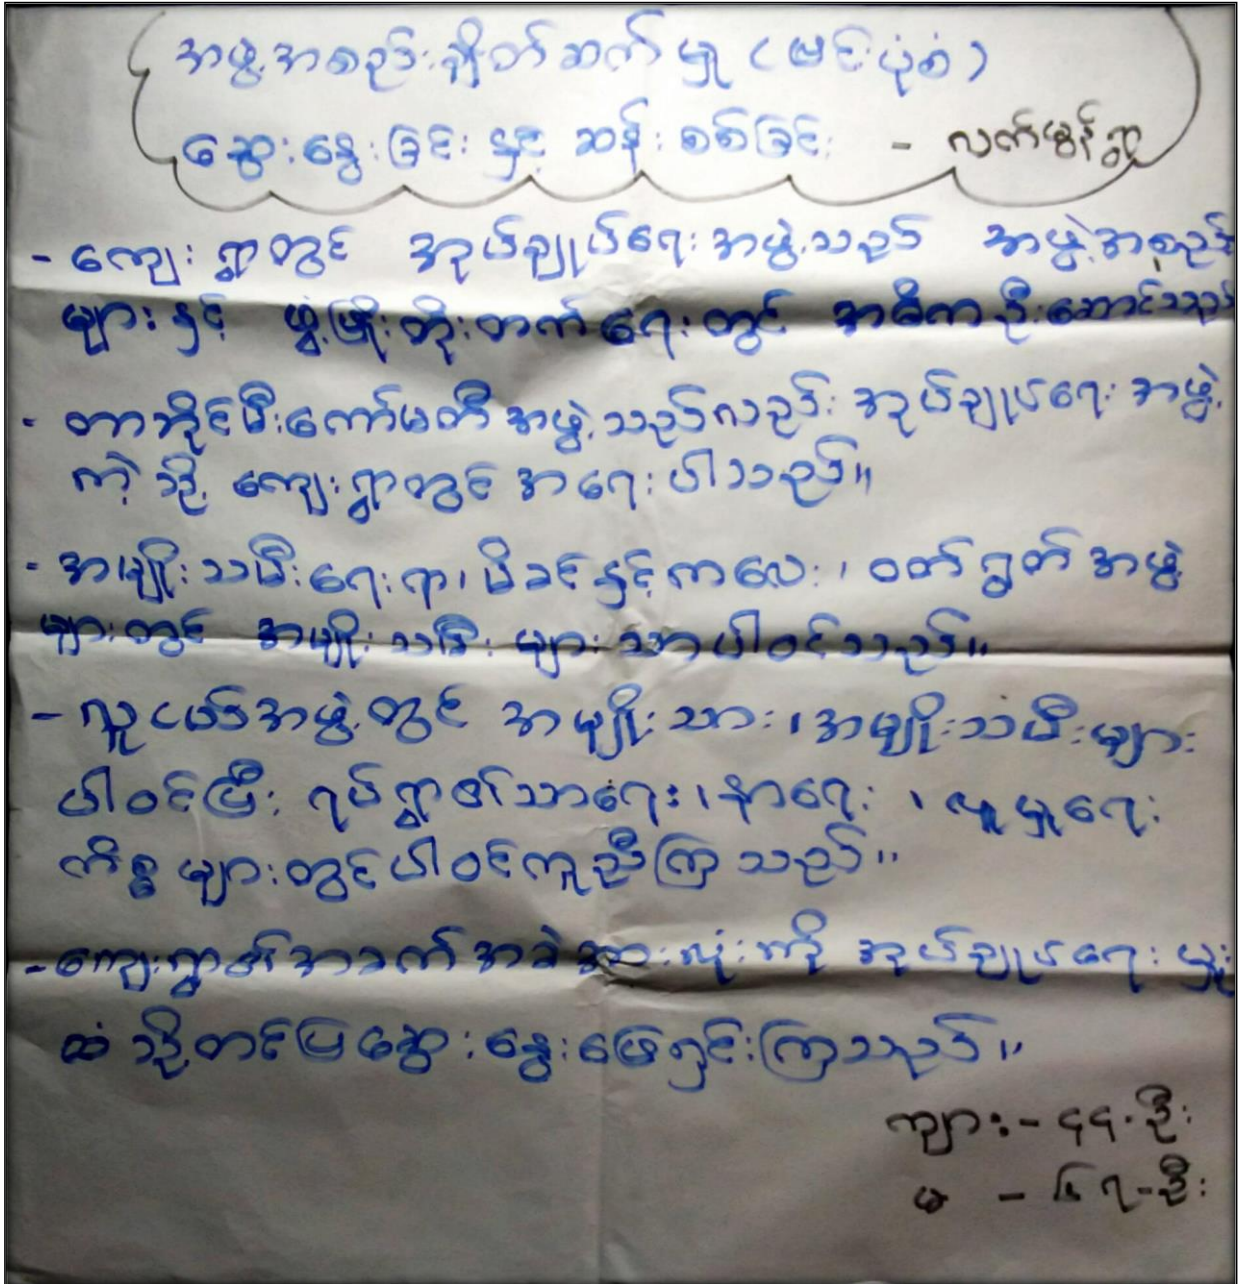 အဖွဲ့အစည်းချိတ်ဆက်မှု (ဗင်းပုံစံ)
ဆွေးနွေးခြင်း နှင့် ဆန်းစစ်ခြင်း - လက်ဖွန်ရွာ
- ကျေးရွာတွင် အုပ်ချုပ်ရေးအဖွဲ့သည် အဖွဲ့အစည်း
များနှင့် ဖွံ့ဖြိုးတိုးတက်ရေးတွင် အဓိကဦးဆောင်သည်
- တာအိုင်မီးကော်မတီအဖွဲ့သည်လည်း အုပ်ချုပ်ရေးအဖွဲ့
ကဲ့သို့ ကျေးရွာတွင်အရေးပါသည်။
- အမျိုးသမီးရေးရာ၊ မိခင်နှင့်ကလေး၊ ဝတ်ရွတ်အဖွဲ့
များတွင် အမျိုးသမီးများသာပါဝင်သည်။
- လူငယ်အဖွဲ့တွင် အမျိုးသား၊ အမျိုးသမီးများ
ပါဝင်ပြီး ရပ်ရွာ၏သာရေး၊ နာရေး၊ လူမှုရေး
ကိစ္စများတွင်ပါဝင်ကူညီကြသည်။
- ကျေးရွာ၏အခက်အခဲအားလုံးကို အုပ်ချုပ်ရေးမှူး
ထံသို့တင်ပြဆွေးနွေးဖြေရှင်းကြသည်။
ကျား - ၄၄-ဦး
မ - ၆၇-ဦး